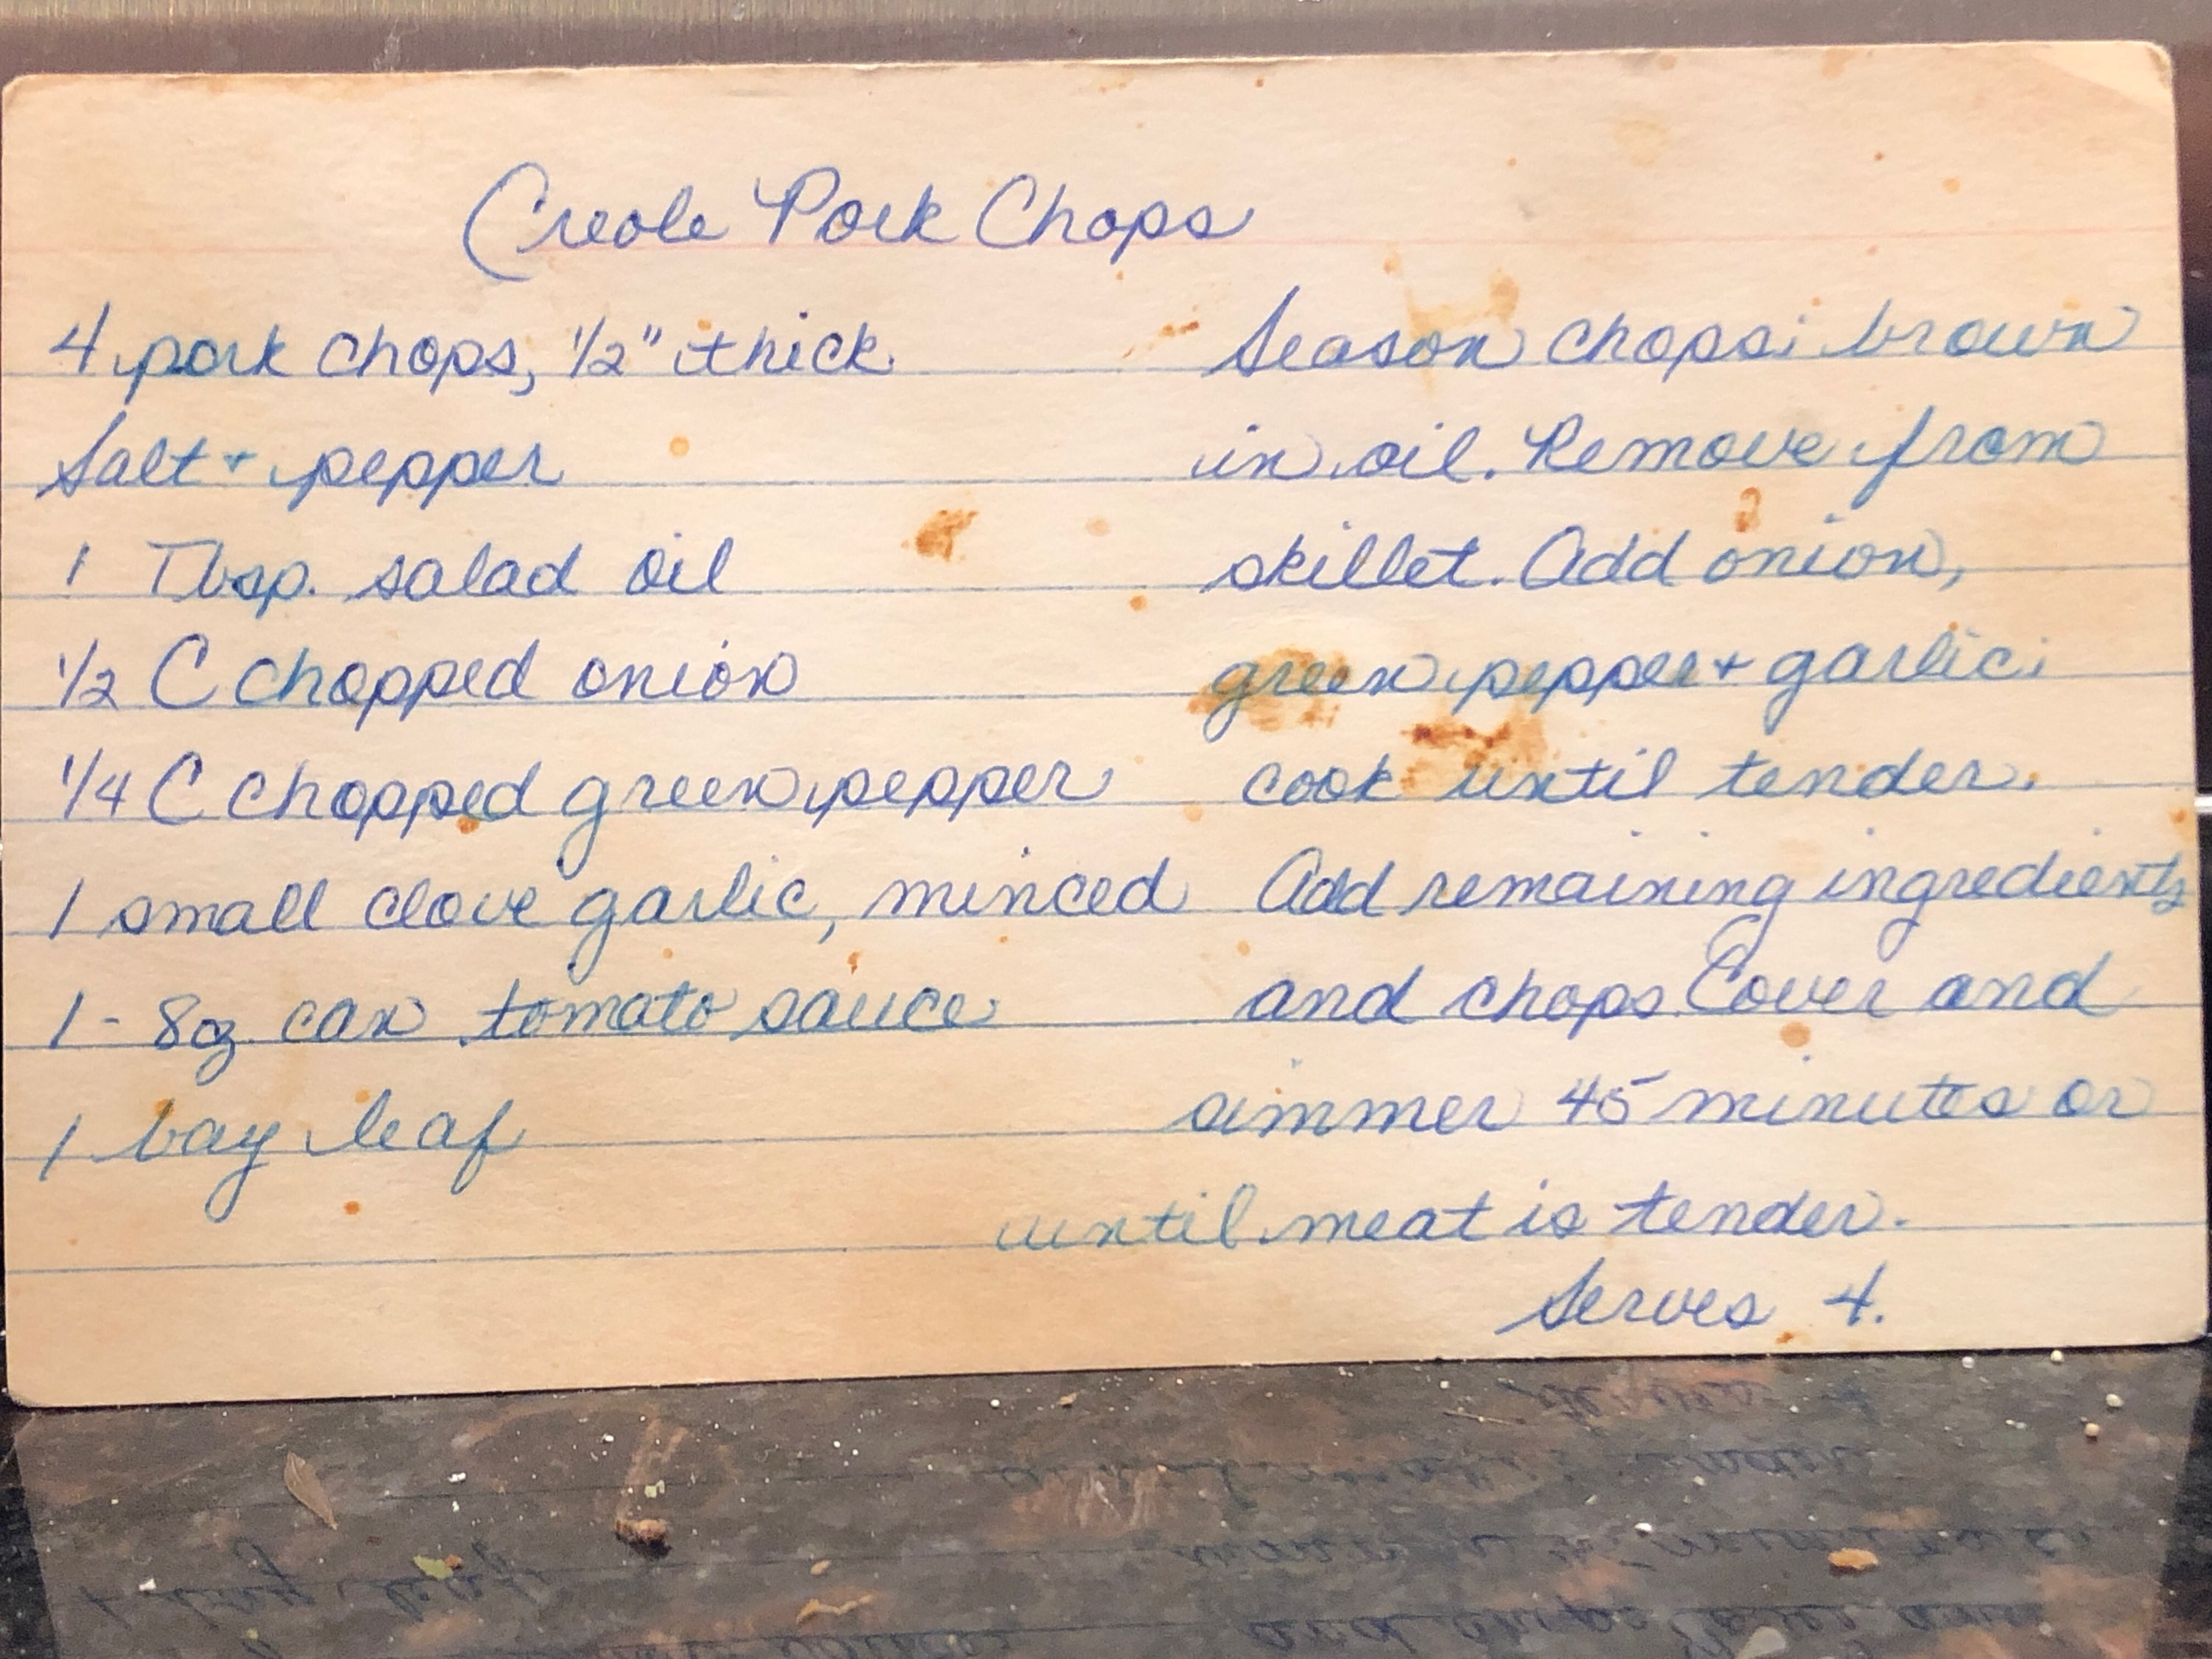 Creole Pork Chops
4 pork chops, 1/2" thick
Salt + pepper
1 Tbsp. salad oil
1/2 C chopped onion
1/4 C chopped green pepper
1 small clove garlic, minced
1 - 8oz. can tomato sauce
1 bay leaf
Season chops; brown
in oil. Remove from
skillet. Add onion,
green pepper + garlic;
cook until tender.
Add remaining ingredients
and chops. Cover and
simmer 45 minutes or
until meat is tender.
Serves 4.